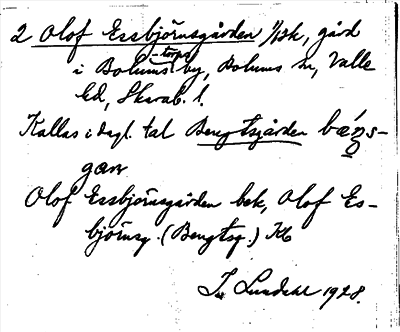 2 Olof Essbjörnsgården 1/1 sk, gård
i Bolums-torps by, Bolums sn, Valle
hd, Skarab. l.
Kallas i dagl. tal Bengtsgården
gan
Olof Essbjörnsgården bek, Olof Es-
björnsg. (Bengtsg.) Kb
I. Lundahl 1928.